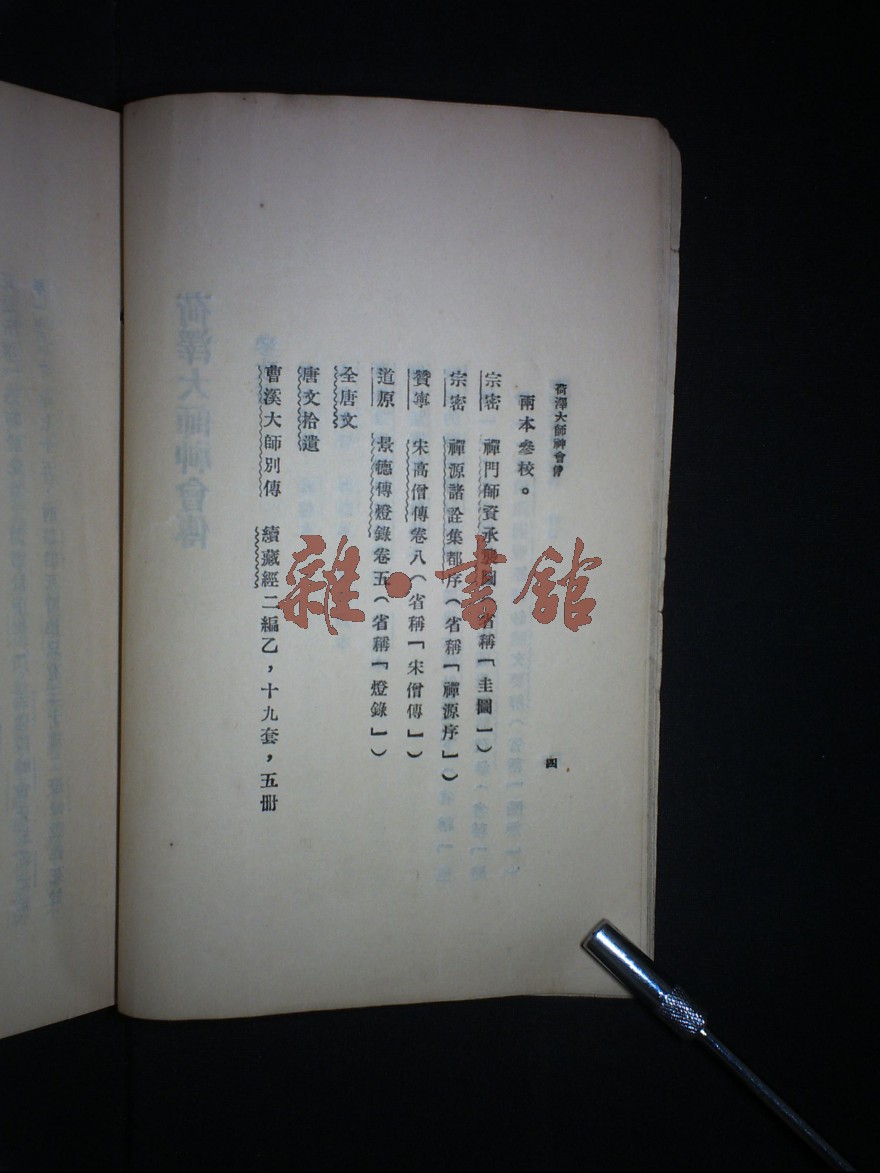 荷澤大師神會傳
四
兩本參校。
宗密 禪門師資承襲圖(省稱「圭圖」)
宗密 禪源諸詮集都序(省稱「禪源序」)
贊寧 宋高僧傳卷八(省稱「宋僧傳」)
道原 景德傳燈錄卷五(省稱「燈錄」)
全唐文
唐文拾遺
曹溪大師別傳 續藏經二編乙,十九套,五冊
荷澤大師神會傳
雜·書館